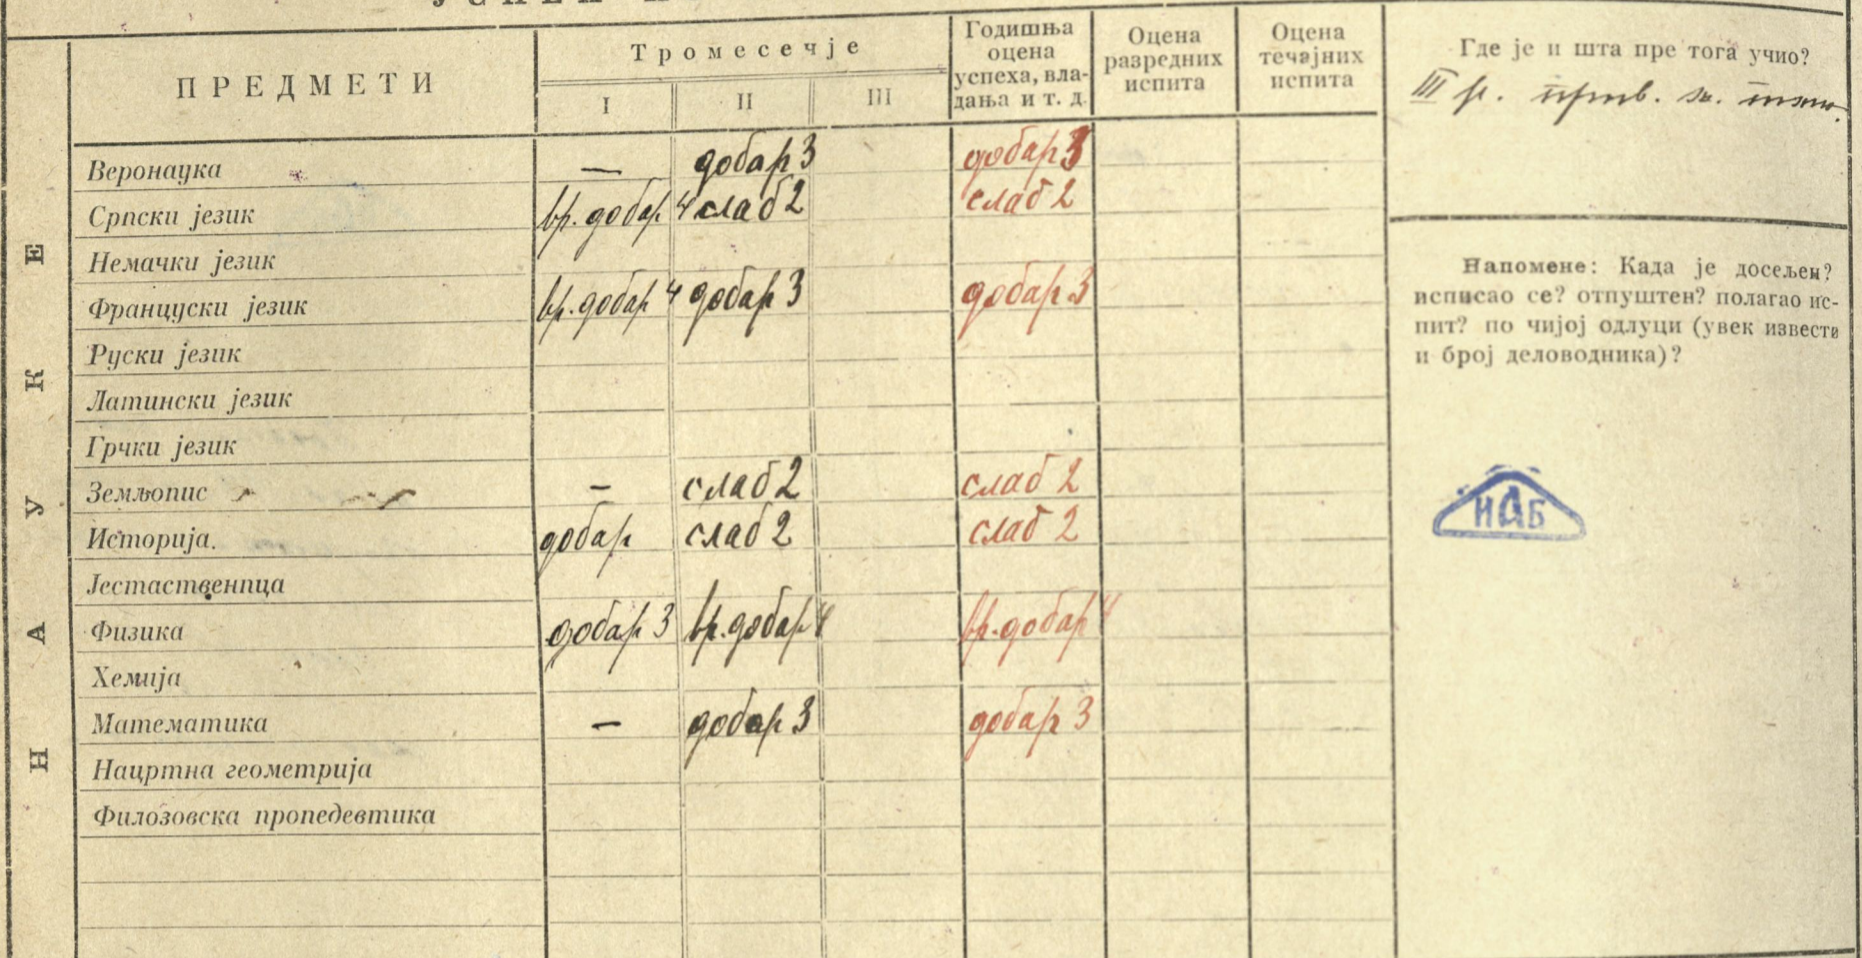 ПРЕДМЕТИ
Тромесечје
I II III
Годишња
оцена
успеха, вла-
дања и т. д.
Оцена
разредних
испита
Оцена
течајних
испита
Где је и шта пре тога учио?
III р. прив. ж.
НАУКЕ
Веронаука — добар 3 добар 3
Српски језик вр. добар 4 слаб 2 слаб 2
Немачки језик
Француски језик вр. добар 4 добар 3 добар 3
Руски језик
Латински језик
Грчки језик
Земљопис — слаб 2 слаб 2
Историја. добар слаб 2 слаб 2
Јестаственица
Физика добар 3 вр. добар 4 вр. добар 4
Хемија
Математика — добар 3 добар 3
Нацртна геометрија
Филозовска пропедевтика
Напомене: Када је досељен?
исписао се? отпуштен? полагао ис-
пит? по чијој одлуци (увек извести
и број деловодника)?
ИАБ